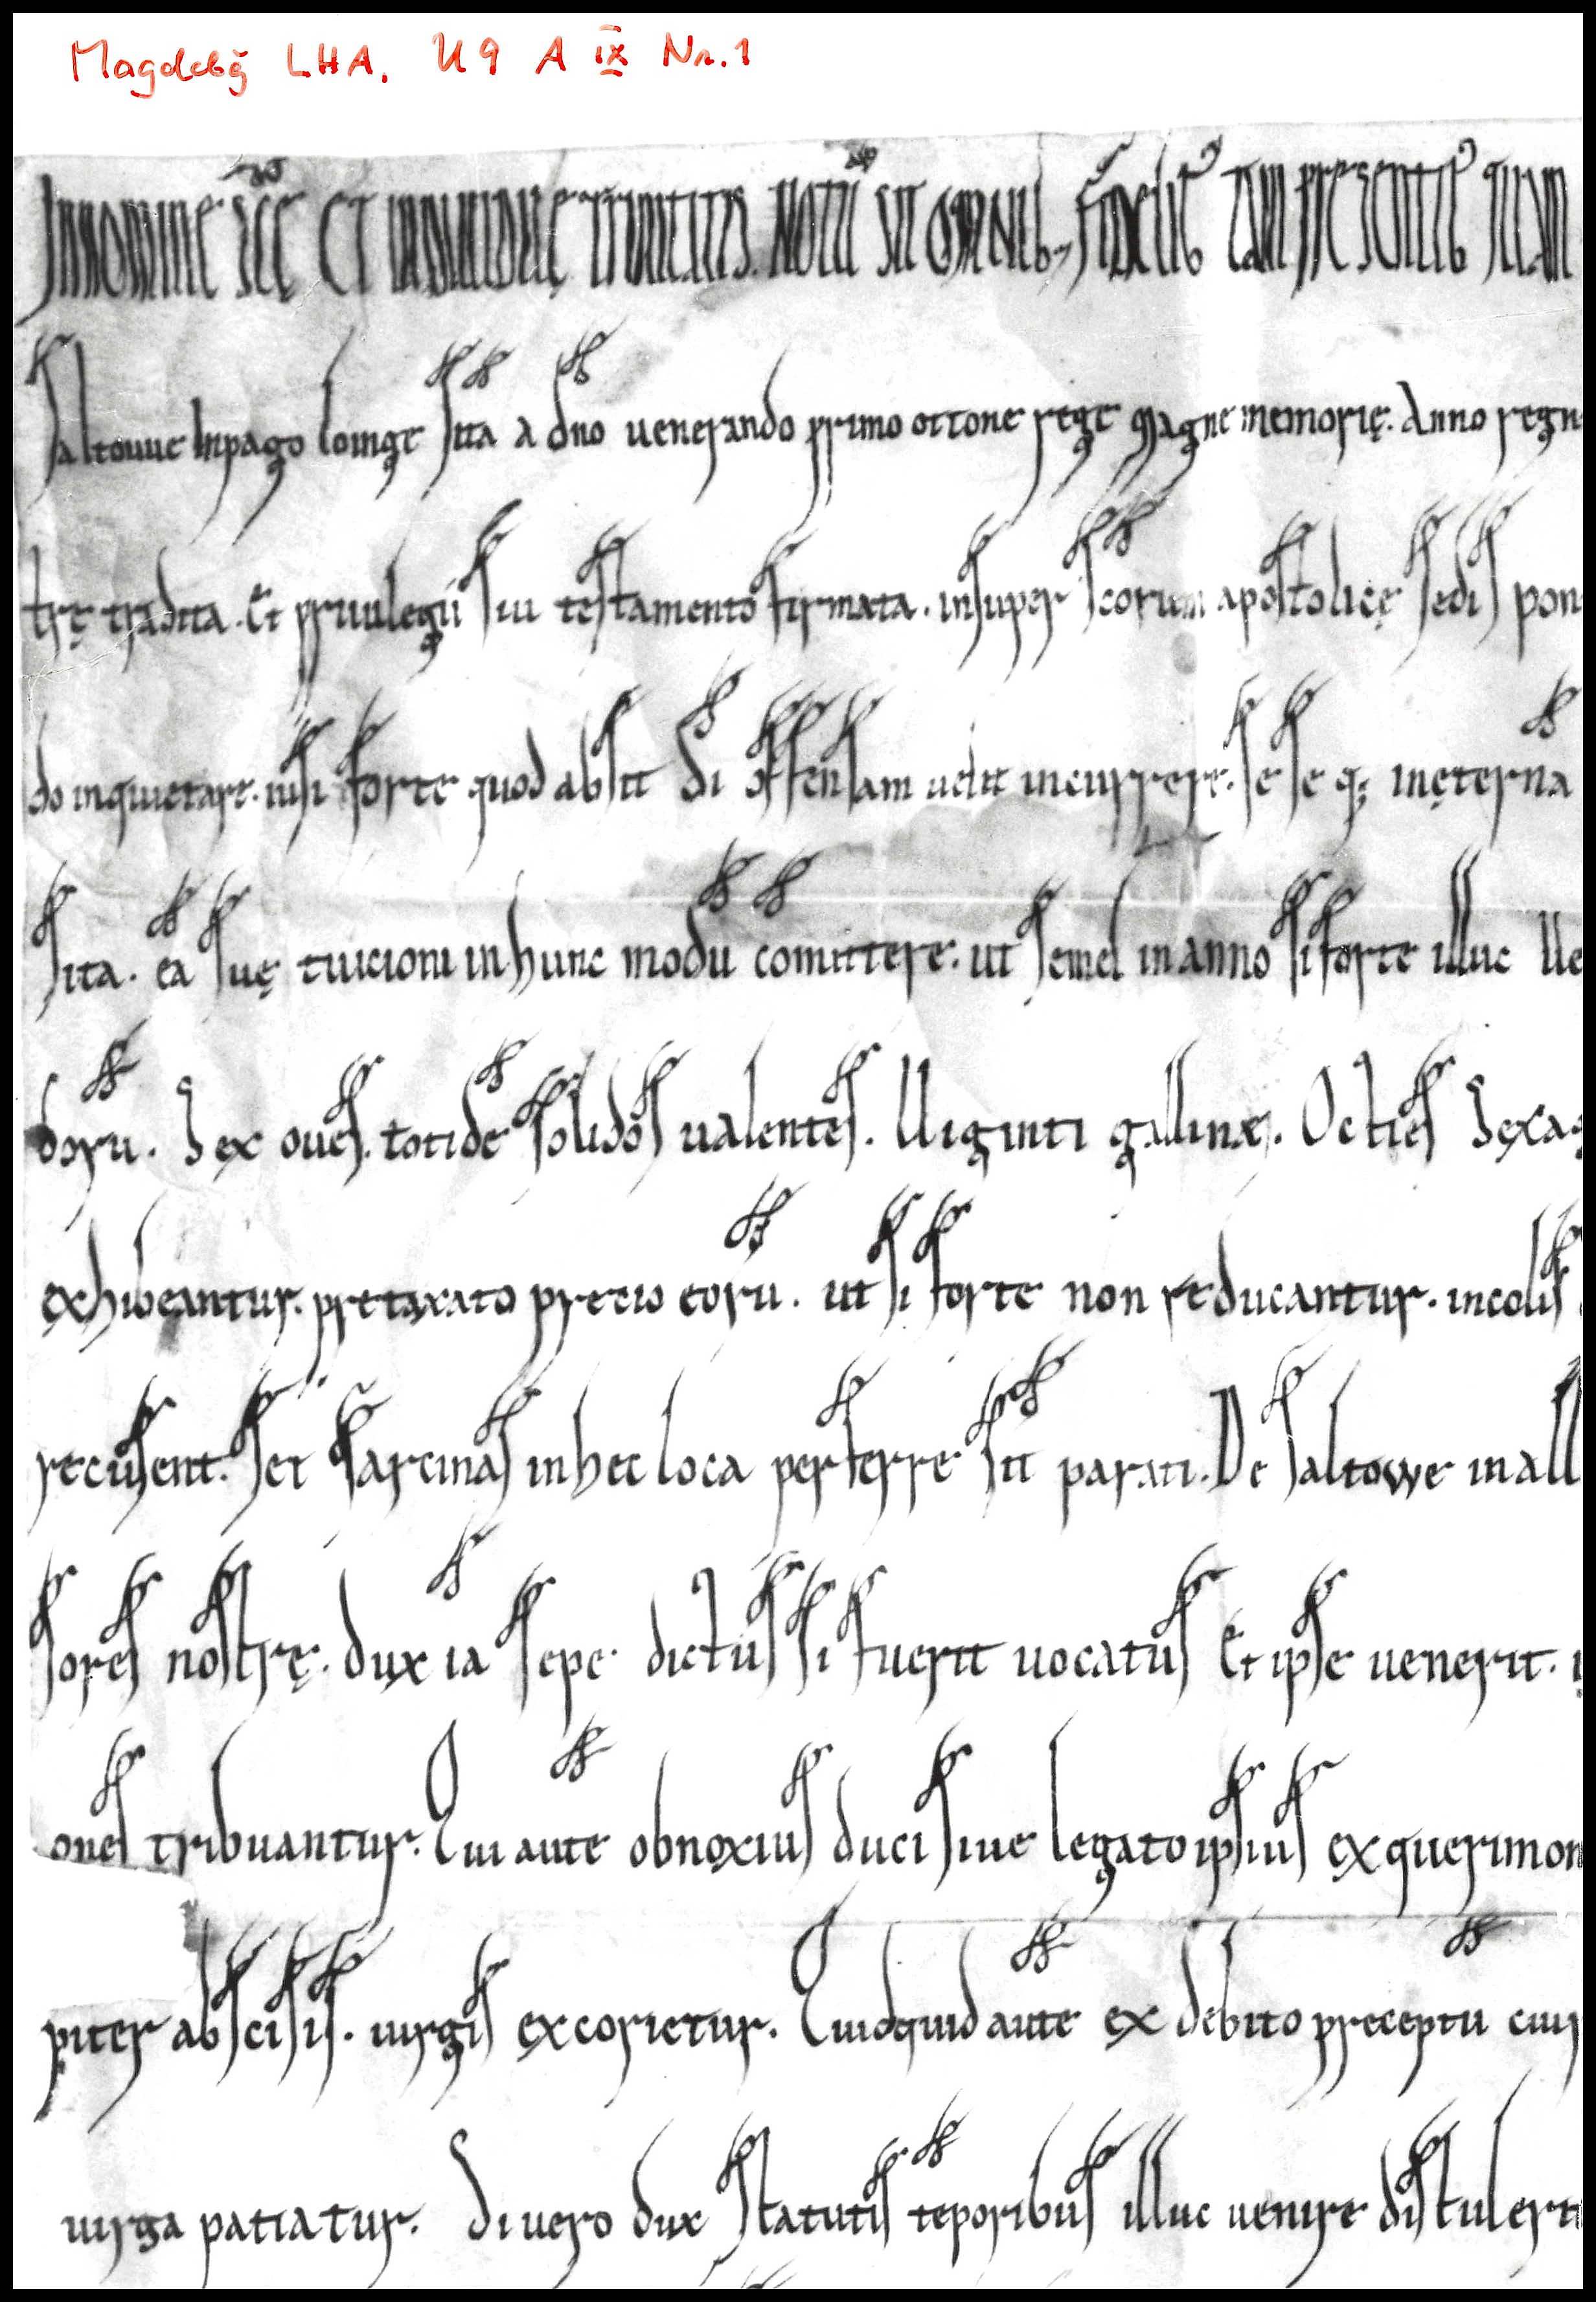 Magdebg̃ LHA. U 9 A IX Nr. 1
In nomine sc̄ę et indiuiduę trinitatis. Notū sit omnib; fidelib⁊ tam presentib⁊ quam
Saltouue In pago loingę sita a dn̄o uenerando primo ottone rege magnę memorię. Anno regn
trę tradita. Et priuilegii siu testamento firmata. insuper sc̄orum apostolicę sedis pon
do inquietare. nisi forte quod absit d̄i offensam uelit incurrere. se se q; in ęterna
sita. eā suę tuicioni in hunc modū cōmittere. ut semel in anno si forte illuc Ue
borū. Sex oues. totidē solidos ualentes. Uiginti gallinę. Octies Sexag
exhibeantur. pretaxato precio eorū. ut si forte non reducantur. incolis
recusent. set sarcinas in hec loca perferre sīt parati. De saltowe in all
sores nostrę. dux iā sepe dictus si fuerit uocatus Et ipse uenerit.
ones tribuantur. Qui autē obnoxius duci siue legato ipsius ex querimon
piter abscisis. uirgis excorietur. Quidquid autē ex debito preceptū cuiu
uirga patiatur. Si uero dux statutis tēporibus illuc uenire distulerit